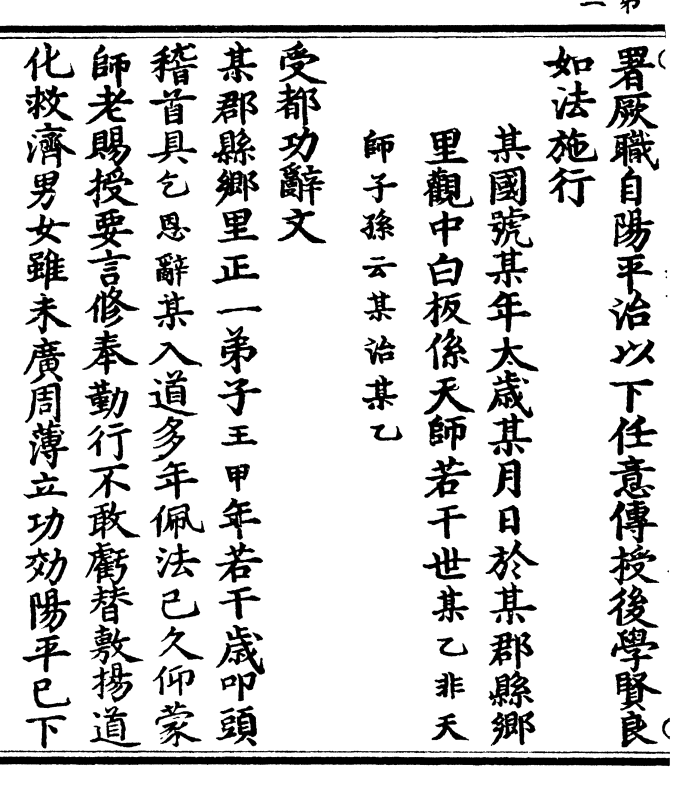 署厥職自陽平治以下任意傳授後學賢良
如法施行
某國號某年太歲某月日於某郡縣鄉
里觀中白板係天師若干世某乙非天
師子孫云某治某乙
受都功辭文
某郡縣鄉里正一弟子王甲年若干歲叩頭
稽首具乞恩辭某入道多年佩法已久仰蒙
師老賜授要言修奉勤行不敢虧替敷揚道
化救濟男女雖未廣周薄立功効陽平已下